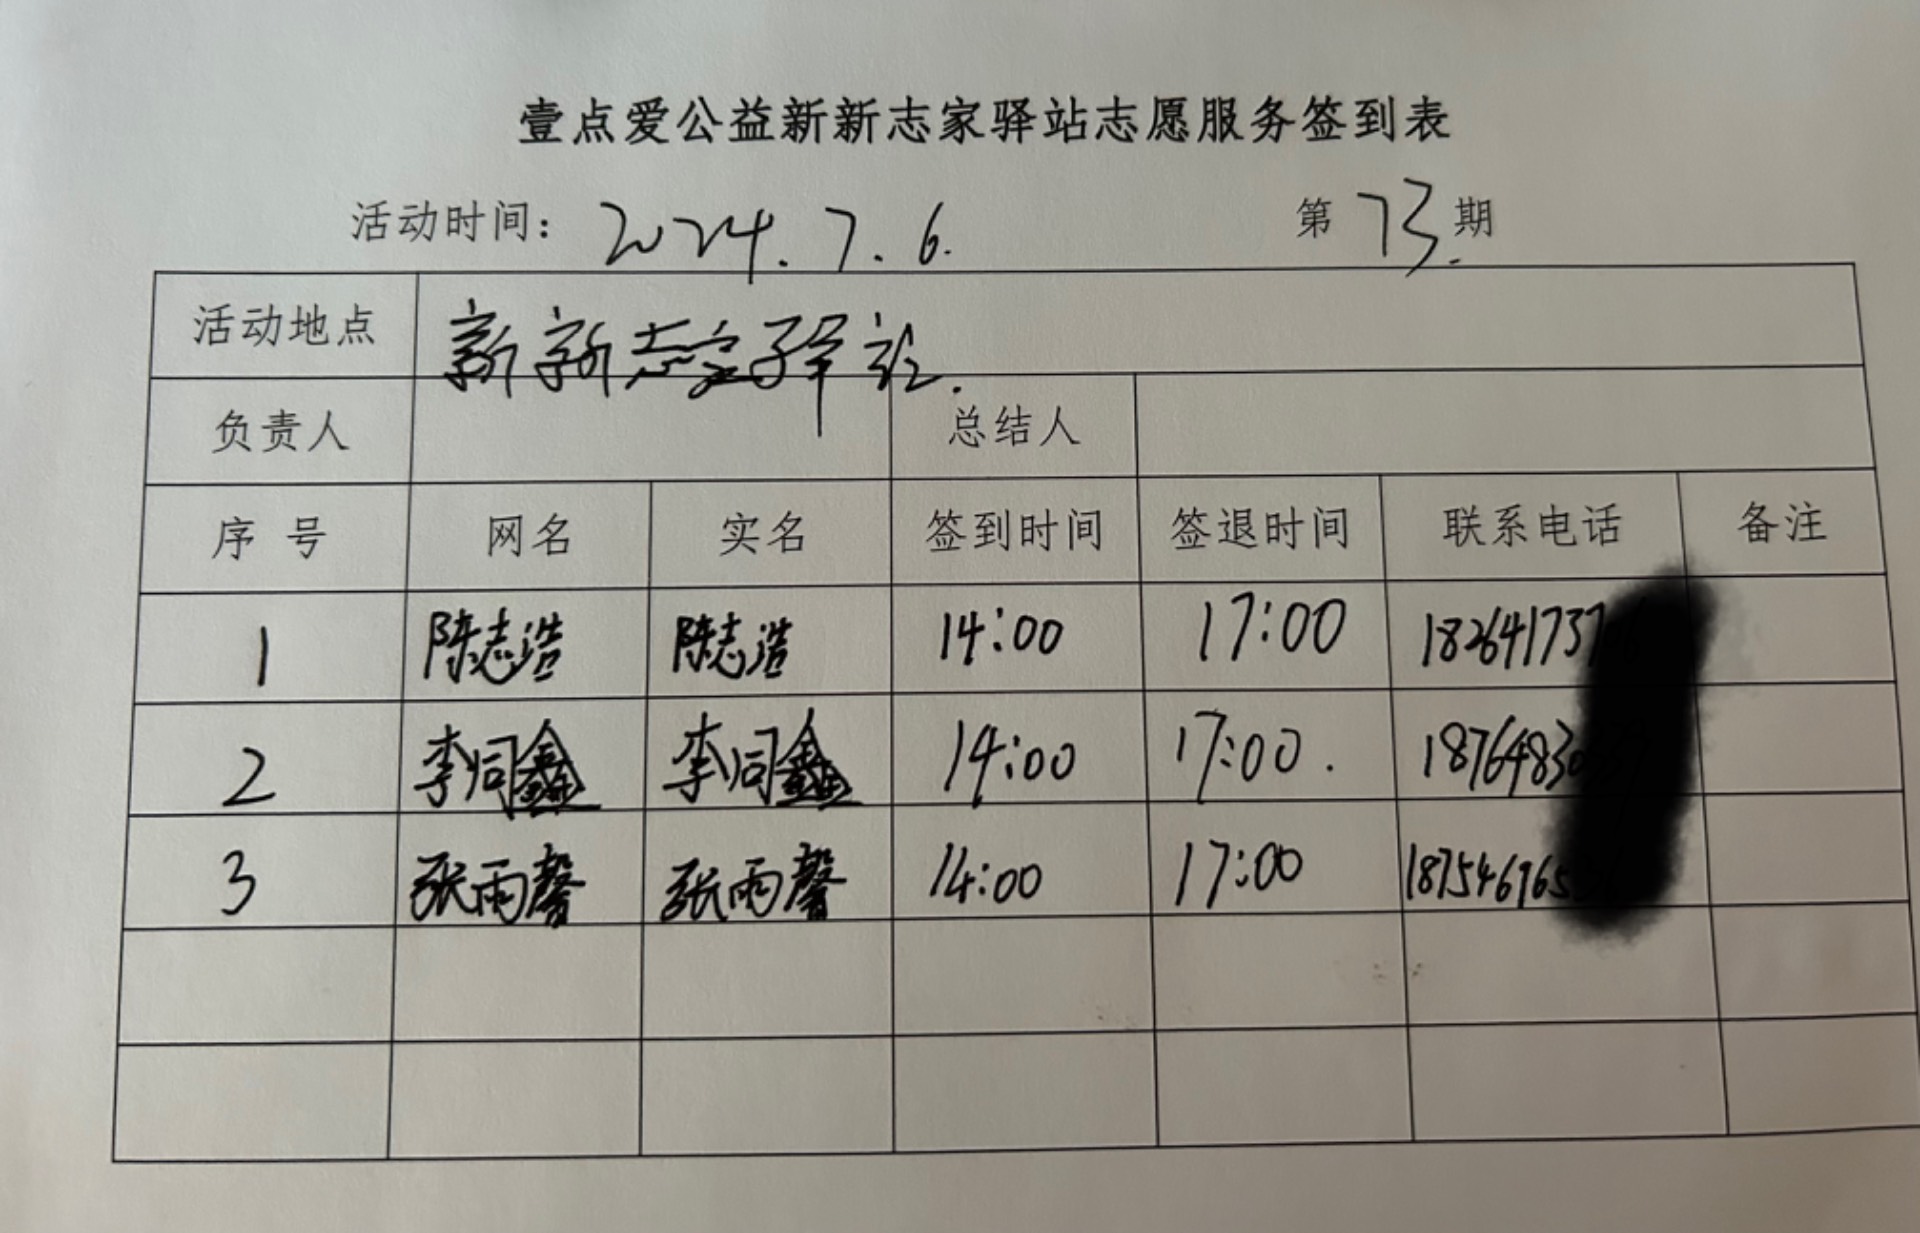 壹点爱公益新新志家驿站志愿服务签到表
活动时间: 2024.7.6. 第73期
活动地点 新新志家驿站.
负责人 总结人
序号 网名 实名 签到时间 签退时间 联系电话 备注
1 陈志浩 陈志浩 14:00 17:00 182641737
2 李同鑫 李同鑫 14:00 17:00. 18764830
3 张雨馨 张雨馨 14:00 17:00 187546965